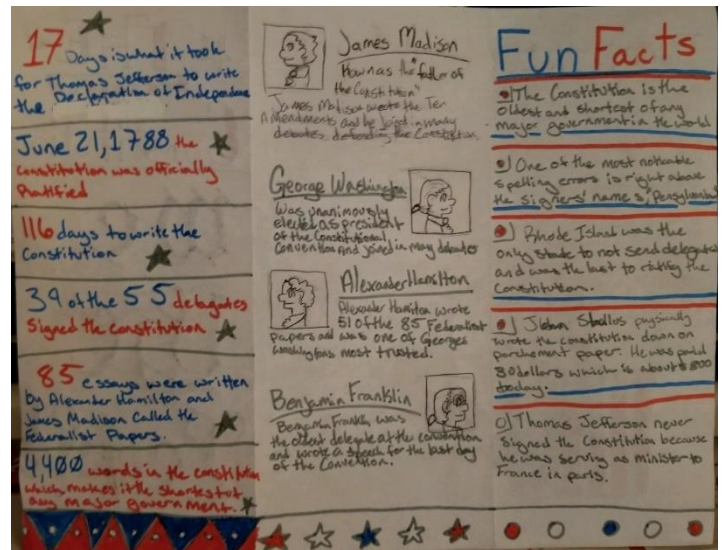 17 Days is what it took
for Thomas Jefferson to write
the Declaration of Independence
June 21, 1788 the
constitution was officially
Pratified
116 days to write the
Constitution
39 of the 55 delegates
Signed the constitution
85 essays were written
by Alexander Hamilton and
James Madison Called the
Federalist Papers.
4,400 words in the constitution
which makes it the shortest of
any major government.
James Madison
"father of
the Constitution"
James Madison wrote the Ten
Amendments and he joined in many
debates defending the Constitution.
George Washington
Was unanimously
elected as president
of the Constitutional
Convention And joined in many debates
Alexander Hamilton
Alexander Hamilton wrote
51 of the 85 Federalist
papers and was one of Georges
most trusted.
Benjamin Franklin
Benjamin Franklin was
the oldest delegate at the convention
and wrote a speech for the last day
of the Convention.
Fun Facts
The Constitution is the
oldest and shortest of any
major government in the world
One of the most noticable
spelling errors is right above
the signers' names,
Rhode Island was the
only state to not send delegates
and was the last to ratify the
Constitution.
physically
wrote the constitution down on
parchement paper. He was paid
30 dollars which is about $800
today.
Thomas Jefferson never
signed the Constitution because
he was serving as minister to
France in paris.